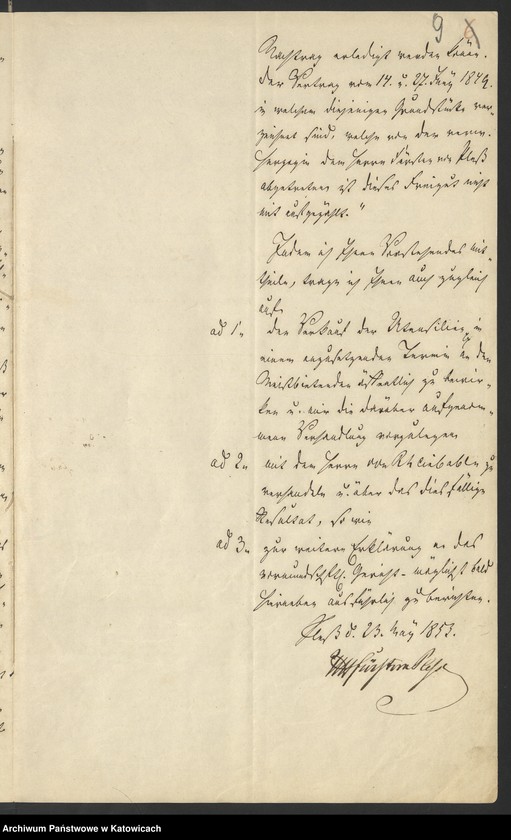 9
Nachtrag erledigt werden kann.
Der Vertrag vom 14. u. 27. Juny 1849.
in welchem diejenigen Grundstücke ver-
zeichnet sind, welche von der verw.
Herzogin dem Herrn Fürsten von Pleß
abgetreten ist dieses Freigut nicht
mit aufgezählt."
Indem ich Ihnen Vorstehendes mit-
theile, trage ich Ihnen auch zugleich
auf
ad 1. den Verkauf der Utensilien in
einem anzusetzenden Termin an den
Meistbietenden öffentlich zu bewir-
ken u. mir die darüber aufgenom-
mene Verhandlung vorzulegen
ad 2. mit dem Herrn von zu
verhandeln u. über das diesfällige
Resultat, so wie
ad 3. zur weitern Erklärung an das
vormundschftl. Gericht - möglichst bald
hierüber ausführlich zu berichten.
Pleß d. 23. May 1853.
Archiwum Państwowe w Katowicach